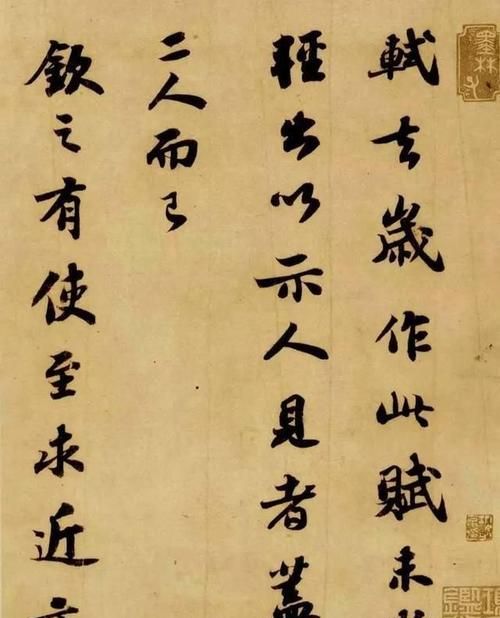 軾去歲作此賦未
輕出以示人見者蓋
二人而已
欽之有使至求近
墨林